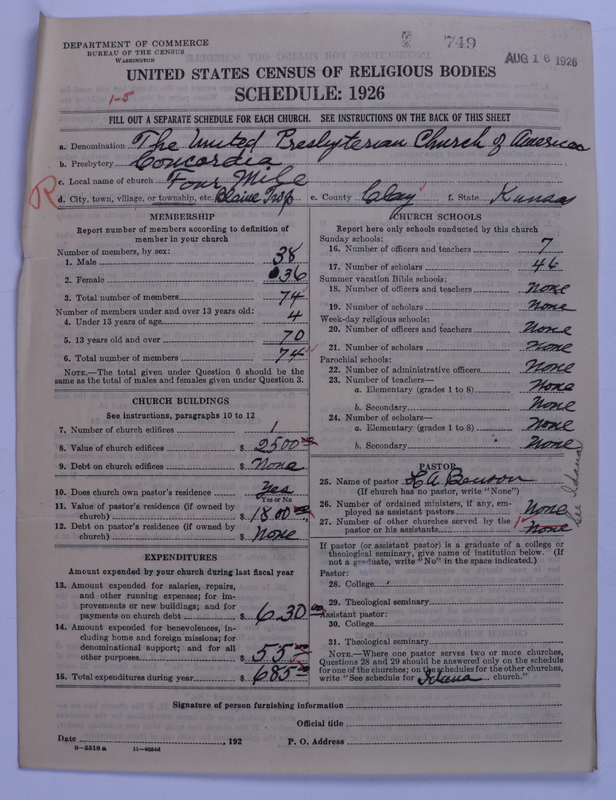 DEPARTMENT OF COMMERCE
BUREAU OF THE CENSUS
WASHINGTON
749
AUG 16 1926
UNITED STATES CENSUS OF RELIGIOUS BODIES
1-5
SCHEDULE: 1926
FILL OUT A SEPARATE SCHEDULE FOR EACH CHURCH. SEE INSTRUCTIONS ON THE BACK OF THIS SHEET
a. Denomination The United Presbyterian Church of America
b. Presbytery Concordia
c. Local name of church Four Mile
R d. City, town, village, or township, etc. Blaine Twp e. County Clay f. State Kansas
MEMBERSHIP
Report number of members according to definition of
member in your church
Number of members, by sex:
1. Male 38
2. Female 36
3. Total number of members 74
Number of members under and over 13 years old:
4. Under 13 years of age 4
5. 13 years old and over 70
6. Total number of members 74
NOTE.—The total given under Question 6 should be
same as the total of males and females given under Question 3.
CHURCH BUILDINGS
See instructions, paragraphs 10 to 12
7. Number of church edifices 1
8. Value of church edifices $ 2500
9. Debt on church edifices $ None
10. Does church own pastor's residence Yes
Yes or No
11. Value of pastor's residence (if owned by
church) $ 1800
12. Debt on pastor's residence (if owned by
church) $ None
EXPENDITURES
Amount expended by your church during last fiscal year
13. Amount expended for salaries, repairs,
and other running expenses; for im-
provements or new buildings; and for
payments on church debt $ 630 00
14. Amount expended for benevolences, in-
cluding home and foreign missions; for
denominational support; and for all
other purposes $ 55
15. Total expenditures during year $ 685
CHURCH SCHOOLS
Report here only schools conducted by this church
Sunday schools:
16. Number of officers and teachers 7
17. Number of scholars 46
Summer vacation Bible schools:
18. Number of officers and teachers None
19. Number of scholars None
Week-day religious schools:
20. Number of officers and teachers None
21. Number of scholars None
Parochial schools:
22. Number of administrative officers None
23. Number of teachers—
a. Elementary (grades 1 to 8) None
b. Secondary None
24. Number of scholars—
a. Elementary (grades 1 to 8) None
b. Secondary None
PASTOR
25. Name of pastor H A Benson
(If church has no pastor, write "None")
26. Number of ordained ministers, if any, em-
ployed as assistant pastors None
27. Number of other churches served by the
pastor or his assistants 1 None
See Idana
If pastor (or assistant pastor) is a graduate of a college or
theological seminary, give name of institution below. (If
not a graduate, write "No" in the space indicated.)
Pastor:
28. College
29. Theological seminary
Assistant pastor:
30. College
31. Theological seminary
NOTE.—Where one pastor serves two or more churches,
Questions 28 and 29 should be answered only on the schedule
for one of the churches; on the schedules for the other churches,
write "See schedule for Idana church."
Signature of person furnishing information
Official title
Date , 192 P. O. Address
8-5518 a